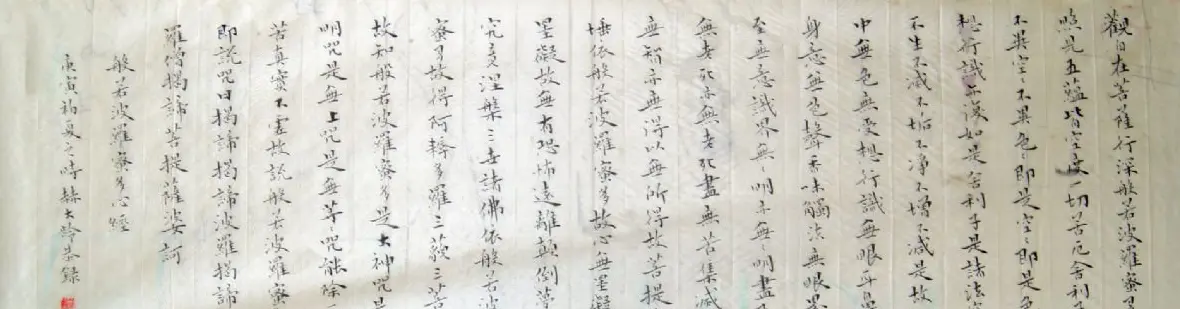 觀自在菩薩行深般若波羅蜜多
照見五蘊皆空度一切苦厄舍利
不異空〻不異色〻即是空〻即是色
想行識亦復如是舍利子是諸法
不生不滅不垢不淨不增不減是故
中無色無受想行識無眼耳鼻
身意無色聲香味觸法無眼界
至無意識界無〻明亦無〻明盡
無老死亦無老死盡無苦集滅
無智亦無得以無所得故菩提
埵依般若波羅蜜多故心無罣礙
罣礙故無有恐怖遠離顛倒夢
究竟涅槃三世諸佛依般若波
蜜多故得阿耨多羅三藐三菩
故知般若波羅蜜多是大神咒是
明咒是無上咒是無等〻咒能除
苦真實不虛故說般若波羅蜜
即說咒曰揭諦揭諦波羅揭諦
羅僧揭諦菩提薩婆訶
般若波羅蜜多心經
庚寅初夏之時赫大齡恭錄